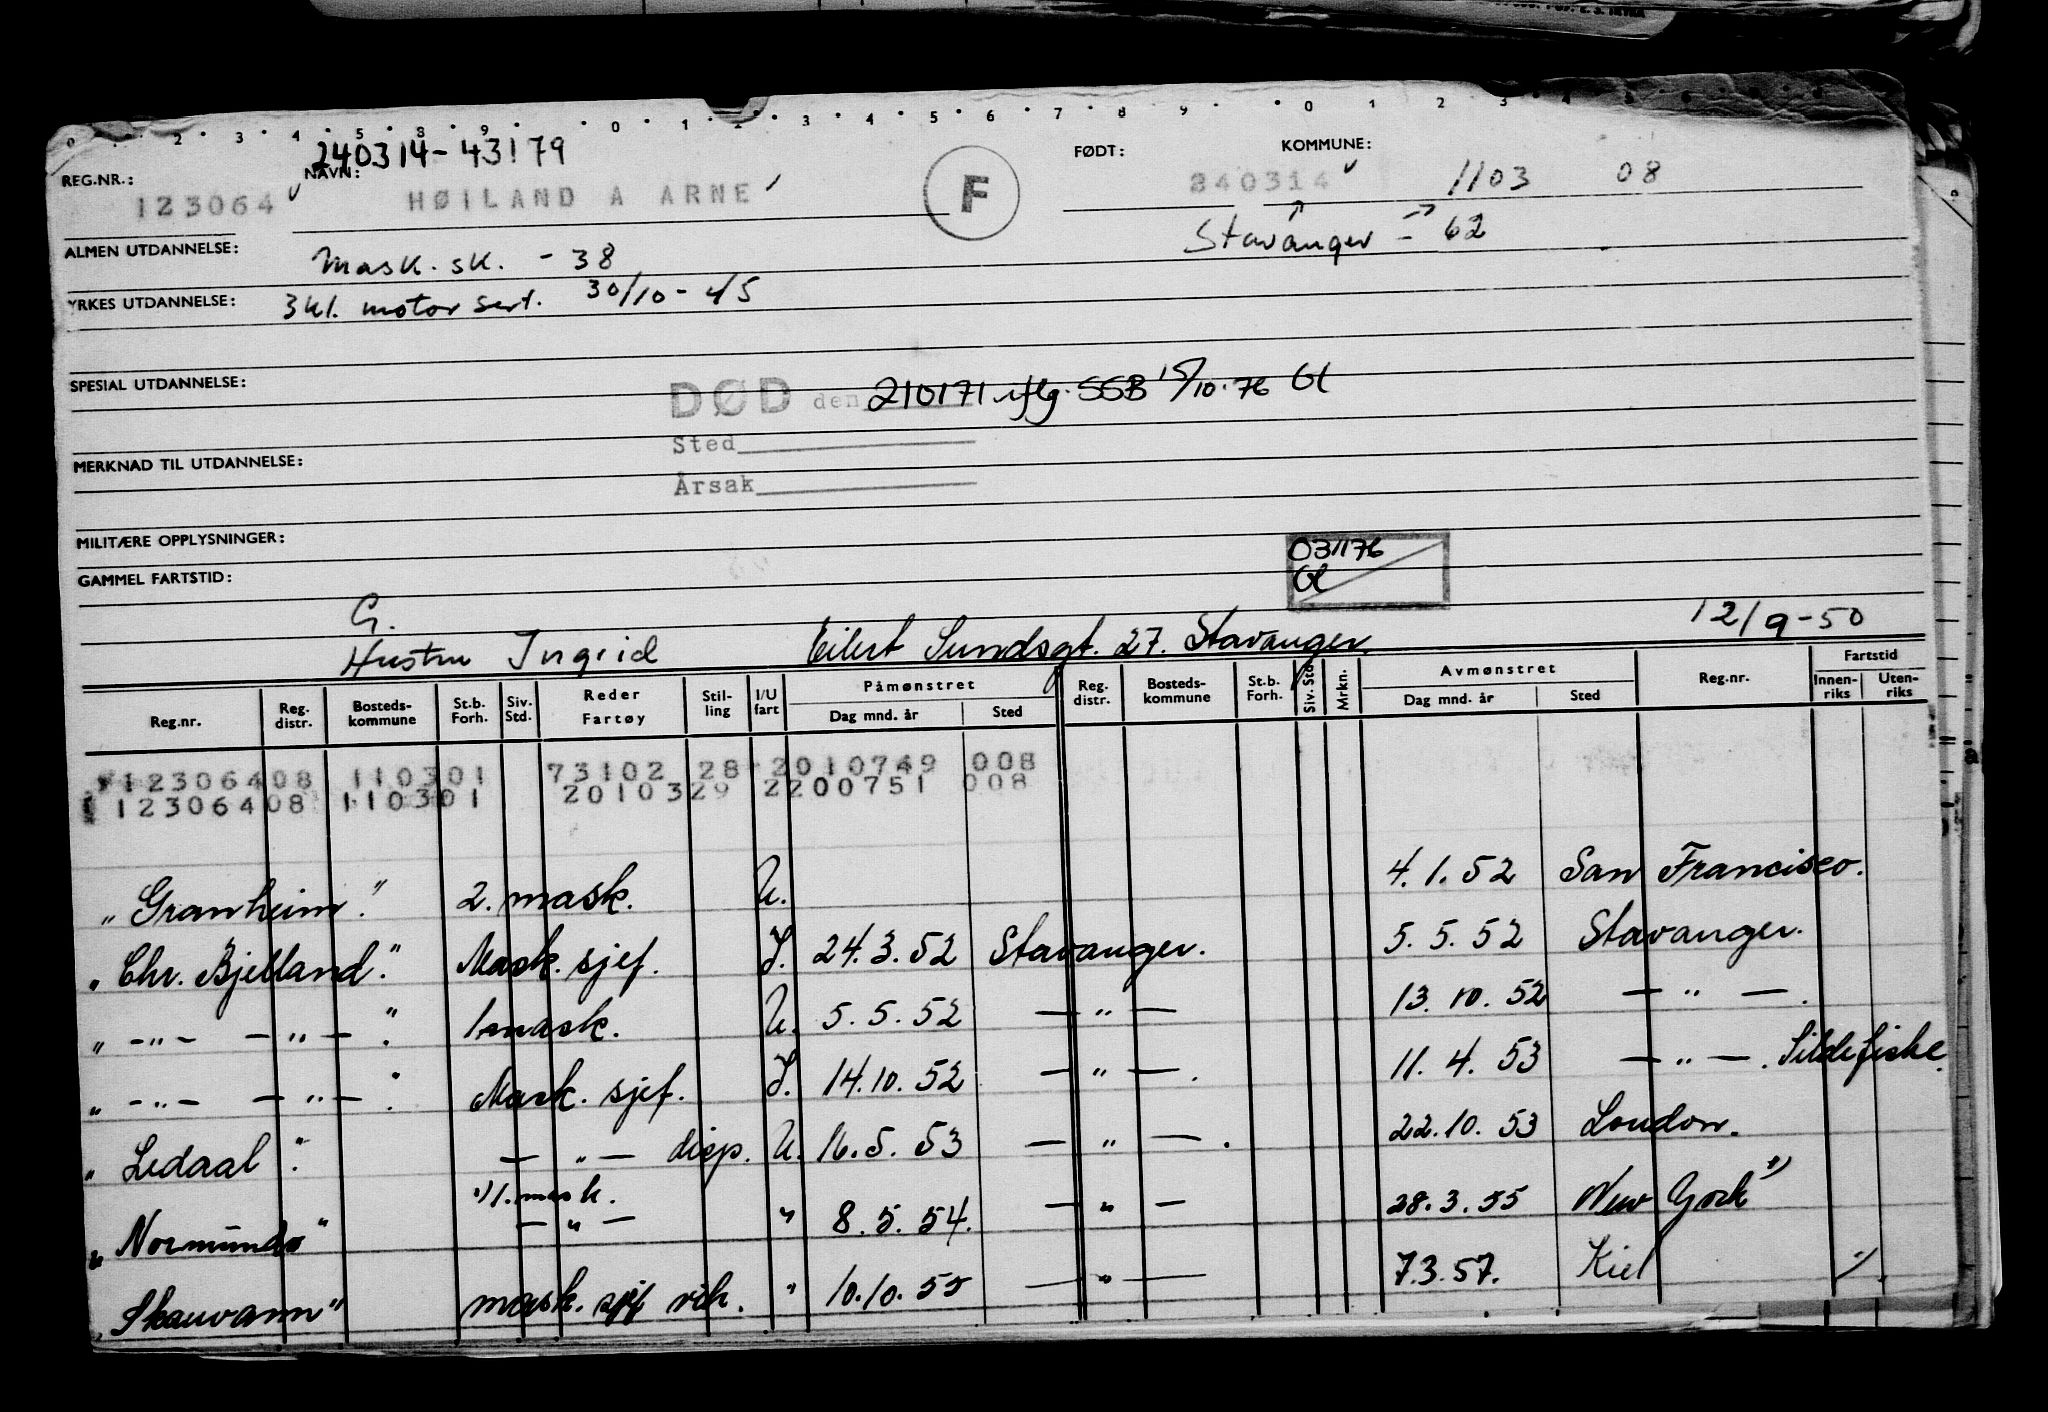 0 . . 2 . 3 . 4 . 5 . 8 . 9 . . 0 . 1 . 2 . 3 . 4 . 5 . 6 . 7 . 8 . 9 . . 0 . 1 . 2 . 3 . 4 . 5
240314-43179
REG.NR.: NAVN: FØDT: KOMMUNE:
123064 HØILAND A ARNE F 240314 1103 08
Stavanger - 62
ALMEN UTDANNELSE: Mask. sk. - 38
YRKES UTDANNELSE: 3 kl. motor sert. 30/10 - 45
SPESIAL UTDANNELSE:
DØD den 210171 iflg. SSB 15/10-76 Gl
Sted
MERKNAD TIL UTDANNELSE:
Årsak
MILITÆRE OPPLYSNINGER:
031176
Gl
GAMMEL FARTSTID:
G.
Hustru Ingrid Eilert Sundsgt. 27. Stavanger. 12/9-50
Reg.nr. Reg. distr. Bosteds-kommune St.b. Forh. Siv. Std. Reder Fartøy Stil-ling I/U fart Påmønstret Dag mnd. år Sted Reg. distr. Bosteds-kommune St.b. Forh. Siv. Std. Mrkn. Avmønstret Dag mnd. år Sted Reg.nr. Fartstid Innen-riks Uten-riks
12306408 110301 73102 28 2010749 008
12306408 110301 2010329 2200751 008
"Granheim." 2. mask. U. 4.1.52 San Francisco.
"Chr. Bjelland." Mask. sjef. I. 24.3.52 Stavanger. 5.5.52 Stavanger.
" -"- -"- ." 1 mask. U. 5.5.52 -"- 13.10.52 -"-.
" -"- -"- ." Mask. sjef. I. 14.10.52 -"-. 11.4.53 -"-. Sildefiske.
"Ledaal". -"- disp. U. 16.5.53 -"-. 22.10.53 London.
"Normundo" 1) 1. mask. -"- " 8.5.54. -"- 28.3.55 New York 1)
"Skauvann" mask. sjef vik. " 10.10.55 -"- 7.3.57. Kiel